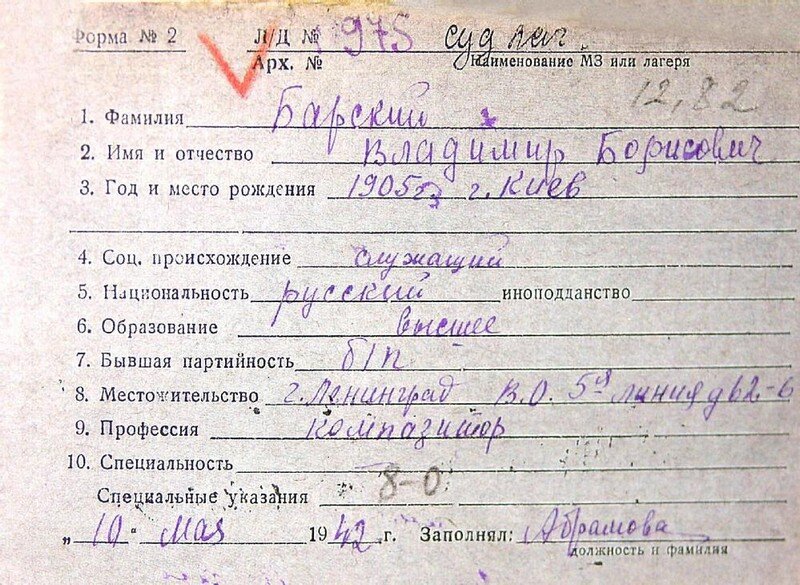 Форма № 2 Л/Д № 975 суд
Арх. № Наименование МЗ или лагеря
12,82
1. Фамилия Барский
2. Имя и отчество Владимир Борисович
3. Год и место рождения 1905 г. Киев
4. Соц. происхождение служащий
5. Национальность русский иноподданство
6. Образование высшее
7. Бывшая партийность б/п
8. Местожительство г. Ленинград В.О. 5я линия д 62-6
9. Профессия компазитор
10. Специальность
Специальные указания 8-0
„10" Мая 1942 г. Заполнял: Абрамова
должность и фамилия